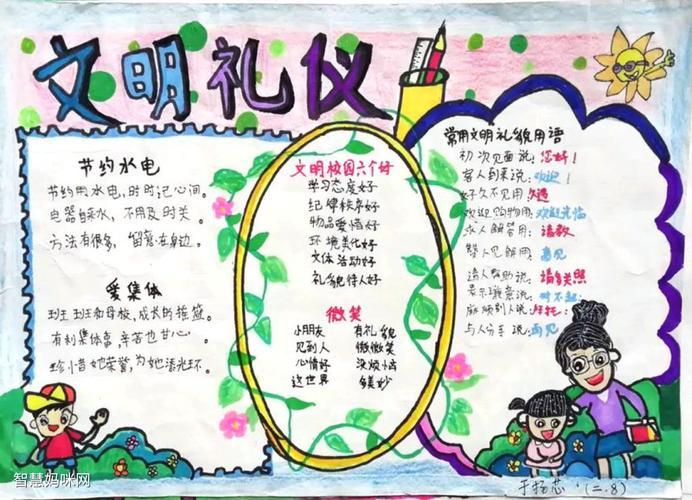 文明礼仪
节约水电
节约用水电，时时记心间。
电器自来水，不用及时关。
方法有很多，留意在身边。
爱集体
班班班和母校，成长的摇篮。
有利集体事，辛苦也甘心。
珍惜她荣誉，为她添光环。
文明校园六个好
学习态度好
纪律秩序好
物品爱惜好
环境美化好
文体活动好
礼貌待人好
微笑
小朋友 有礼貌
见到人 微微笑
心情好 没烦恼
这世界 多美妙
常用文明礼貌用语
初次见面说：您好！
客人到来说：欢迎！
好久不见用久违
欢迎购物用：欢迎光临
求人解答用：请教
请人帮助说：请多关照
表示歉意说：对不起
麻烦别人说：拜托：
与人分手说：再见
于扬芯·(二.8)
智慧妈咪网